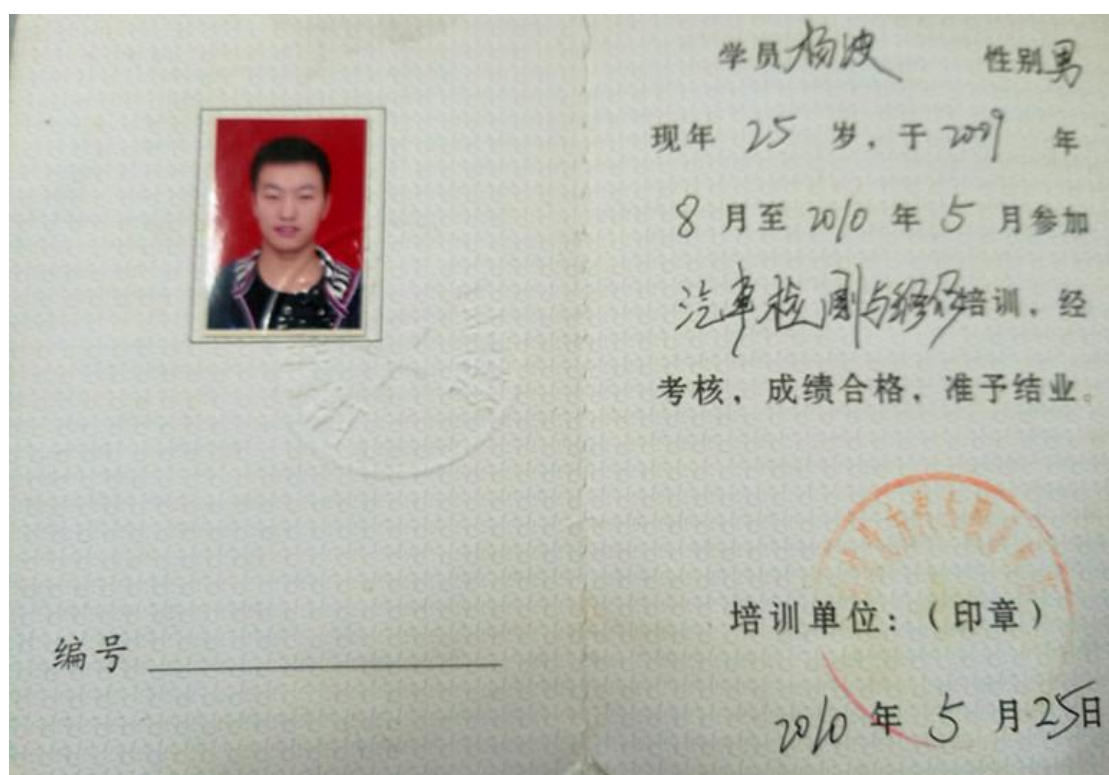 编号
学员杨波 性别男
现年 25 岁，于 2009 年
8 月至 2010 年 5 月参加
汽车检测与维修培训，经
考核，成绩合格，准予结业。
培训单位：（印章）
2010 年 5 月 25 日